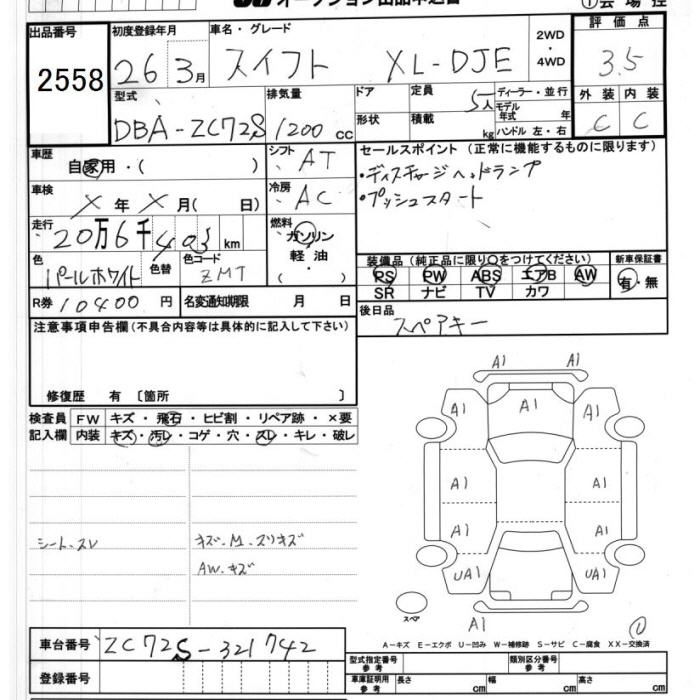 オークション出品申込書
①会場控
出品番号
2558
初度登録年月
26 3月
車名・グレード
スイフト XL-DJE
2WD
・
4WD
評価点
3.5
型式
DBA-ZC72S
排気量
1200 cc
ドア
形状
定員
5人
積載
kg
ディーラー・並行
モデル年式 年
ハンドル 左・右
外装
C
内装
C
車歴
自家用・( )
シフト
AT
セールスポイント(正常に機能するものに限ります)
・ディスチャージヘッドランプ
・プッシュスタート
車検
X年X月( 日)
冷房
AC
走行
20万6千403km
燃料
ガソリン
軽油
・
色
パールホワイト
色替
色コード
ZMT
装備品(純正品に限り○をつけてください)
PS PW ABS エアB AW
SR ナビ TV カワ
新車保証書
有・無
R券 10400円
名変通知期限 月 日
後日品
スペアキー
注意事項申告欄(不具合内容等は具体的に記入して下さい)
修復歴 有 〔箇所 〕
検査員
記入欄
FW キズ・飛石・ヒビ割・リペア跡・×要
内装 キズ・汚レ・コゲ・穴・スレ・キレ・破レ
シート、スレ
キズ、M、スリキズ
AW、キズ
A1 A1
A1 A1 A1
A1 A1
A1 A1
UA1 UA1
スペア
A1
①
A-キズ E-エクボ U-凹み W-補修跡 S-サビ C-腐食 XX-交換済
車台番号 ZC72S-321742
登録番号
型式指定番号
参考
類別区分番号
参考
車庫証明用
参考
長さ cm 幅 cm 高さ cm